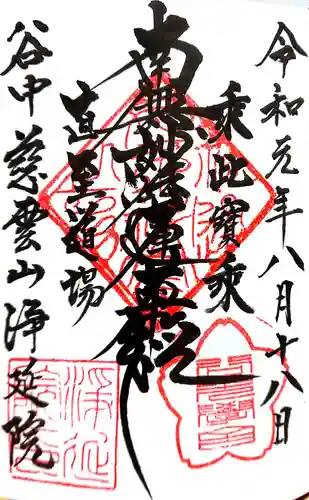 令和元年八月十八日
乗此寶乗
南無妙法蓮華経
直至道場
谷中慈雲山浄延院
浄延院